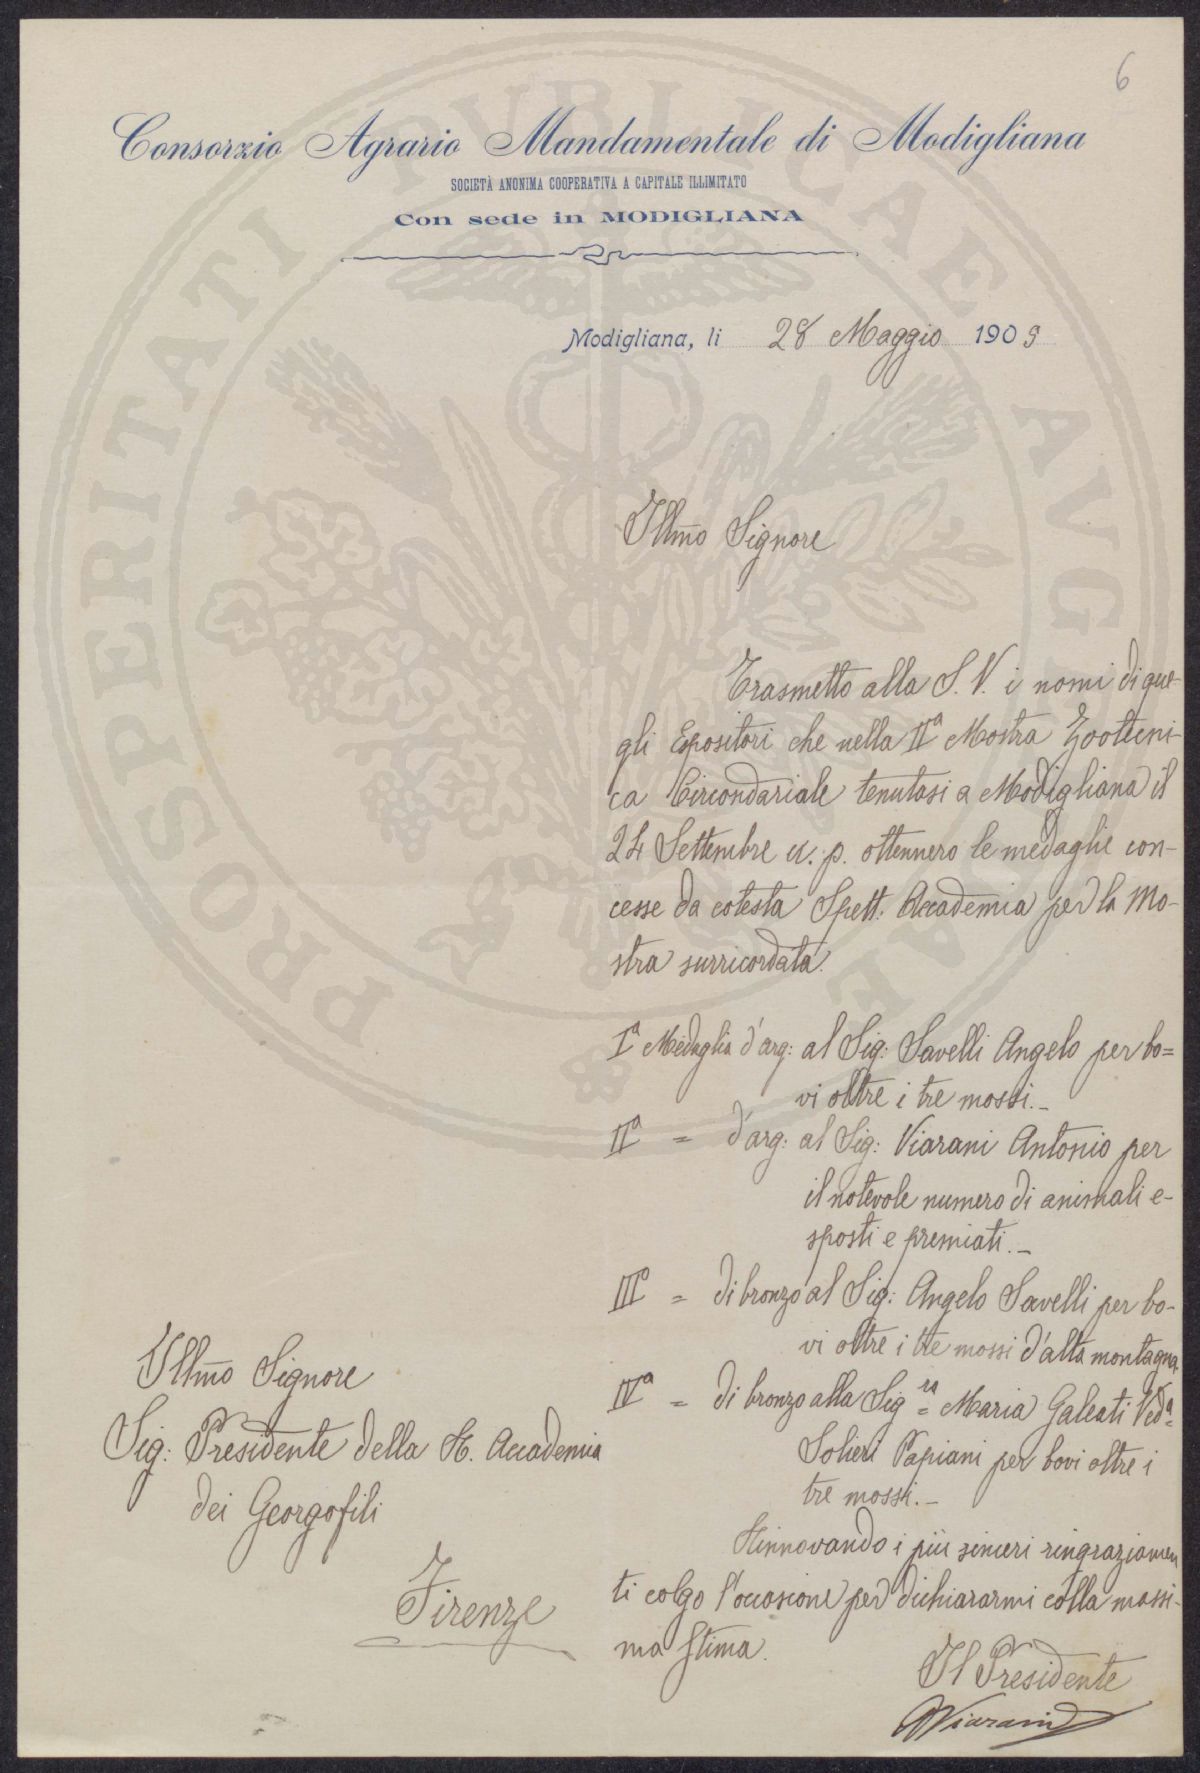 6
Consorzio Agrario Mandamentale di Modigliana
SOCIETÀ ANONIMA COOPERATIVA A CAPITALE ILLIMITATO
Con sede in MODIGLIANA
Modigliana, li 28 Maggio 1909
Illmo Signore
Trasmetto alla S. V. i nomi di que-
gli Espositori che nella IIª Mostra Zootecni-
ca Circondariale tenutasi a Modigliana il
24 Settembre u. p. ottennero le medaglie con-
cesse da cotesta Spett. Accademia per la Mo-
stra surricordata.
Iª Medaglia d'arg: al Sig: Savelli Angelo per bo=
vi oltre i tre mossi.-
IIª = d'arg: al Sig: Viarani Antonio per
il notevole numero di animali e-
sposti e premiati.-
IIIª = di bronzo al Sig: Angelo Savelli per bo-
vi oltre i tre mossi d'alta montagna.
IVª = di bronzo alla Sigra Maria Galeati Vedª
Solieri Papiani per bovi oltre i
tre mossi.-
Rinnovando i più sinceri ringraziamen
ti colgo l'occasione per dichiararmi colla massi-
ma stima.
Il Presidente
AViarani
Illmo Signore
Sig: Presidente della R. Accademia
dei Georgofili
Firenze
PROSPERITATI PVBLICAE AVGENDAE